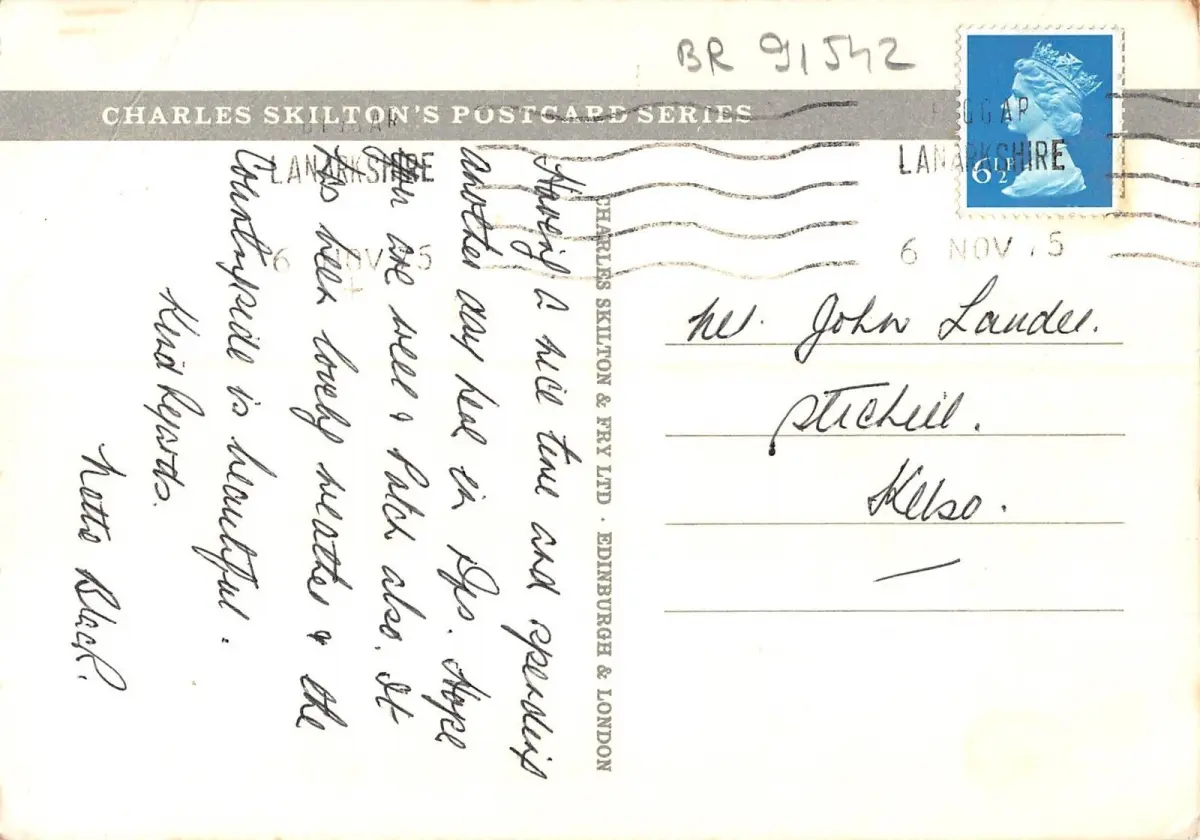 BR 91542
CHARLES SKILTON'S POSTCARD SERIES
BIGGAR
LANARKSHIRE
6 NOV 75
BIGGAR
LANARKSHIRE
6 NOV 75
6½P
Having a nice time and spending
another day here in Hope
you are well & Patch also. It
has been lovely weather & the
Countryside is beautiful.
Kind Regards.
Netta Black.
CHARLES SKILTON & FRY LTD · EDINBURGH & LONDON
Mr. John Lauder.
Stichill.
Kelso.